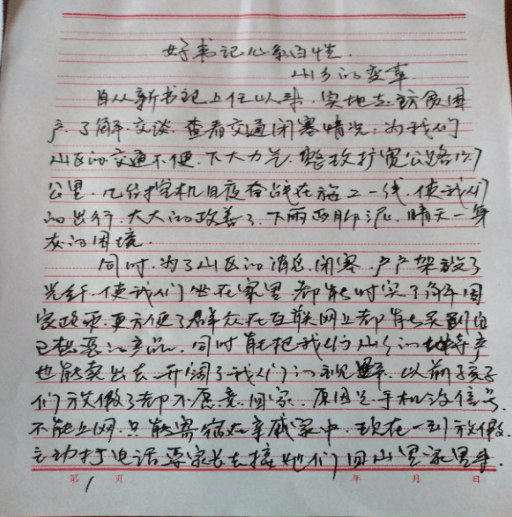 好书记心系百姓
山乡的变革
自从新书记上任以来，实地走访贫困
户，了解，交谈，查看交通闭塞情况，为我们
山区的交通不便，下大力气，整改扩宽公路17
公里，几台挖机日夜奋战在施工一线，使我们
的出行，大大的改善了，下雨两脚泥，晴天一身
灰的困境。
同时，为了山区的消息闭塞，户户架设了
光纤，使我们坐在家里都能时实了解国
家政策，更方便了群众在互联网上都能买到自
己想要的产品，同时能把我们山乡的特产
也能卖出去，开阔了我们的视野，以前了孩子
们放假了都不愿意回家，原因是手机没信号，
不能上网，只能寄宿在亲戚家中，现在一到放假，
主动打电话要家长去接他们回山里家里来，
第1页 年 月 日